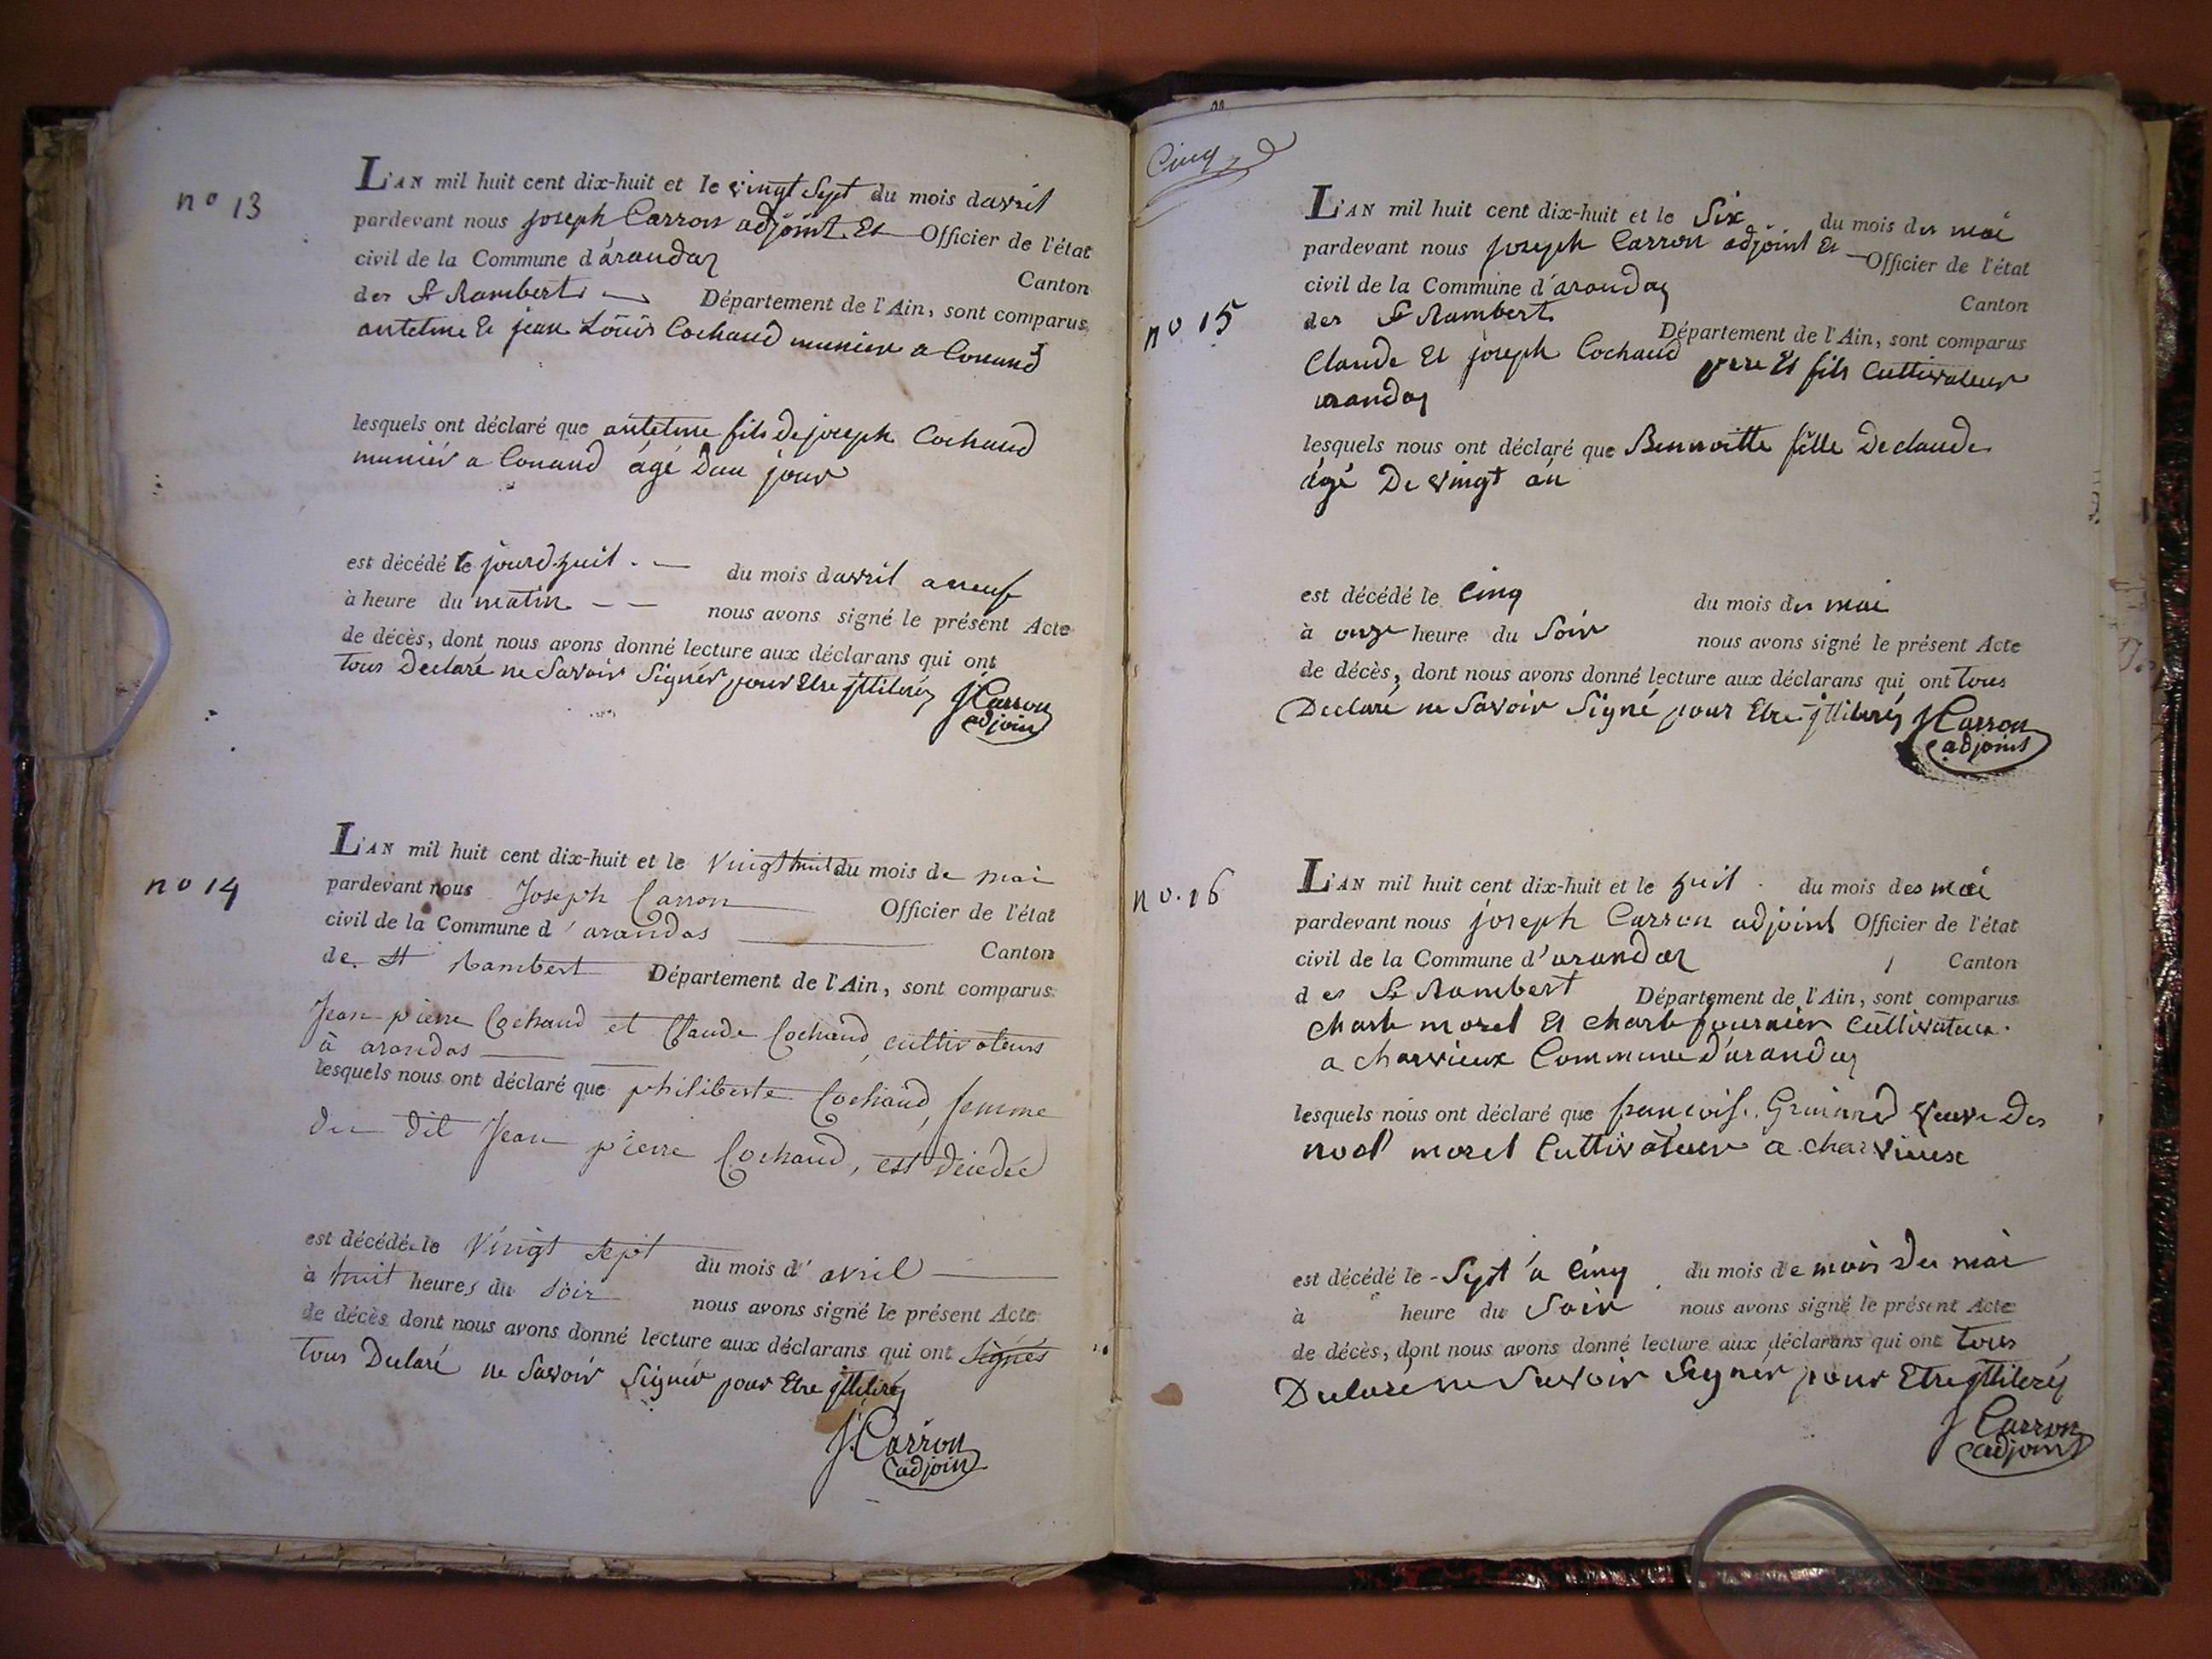 n° 13
L'AN mil huit cent dix-huit et le vingt Sept du mois davril
pardevant nous joseph Carron adjoint Et Officier de l'état
civil de la Commune d'arandas
Canton
der St Rambert Département de l'Ain, sont comparus
antelme Et jean Louis Cochaud munier a Conand
lesquels ont déclaré que antelme fils De joseph Cochaud
munier a Conand agé Dun jour
est décédé le jourd'huit du mois davril a neuf
à heure du matin nous avons signé le présent Acte
de décès, dont nous avons donné lecture aux déclarans qui ont
tous Declaré ne Savoir Signér pour Etre jlliterés J Carron
adjoint
n° 14
L'AN mil huit cent dix-huit et le Vingt huit du mois de mai
pardevant nous Joseph Carron Officier de l'état
civil de la Commune d'arandas
Canton
de St Rambert Département de l'Ain, sont comparus
Jean pierre Cochaud et Claude Cochaud, cultivateurs
à arandas
lesquels nous ont déclaré que philiberte Cochaud, femme
du dit Jean pierre Cochaud, est décedée
est décédé le Vingt sept du mois d'avril
à huit heures du soir nous avons signé le présent Acte
de décès dont nous avons donné lecture aux déclarans qui ont signés
tous Declaré ne Savoir Signér pour Etre jlliterés
J. Carron
adjoint
Cinq
L'AN mil huit cent dix-huit et le Six du mois der mai
pardevant nous joseph Carron adjoint Et Officier de l'état
civil de la Commune d'arandas
Canton
n° 15
der St Rambert Département de l'Ain, sont comparus
Claude Et joseph Cochaud pere Et fils Cultivateur
arandas
lesquels nous ont déclaré que Bennoitte fille De claude
égé De vingt an
est décédé le Cinq du mois der mai
à onze heure du Soir nous avons signé le présent Acte
de décès, dont nous avons donné lecture aux déclarans qui ont tous
Declaré ne Savoir Signé pour Etre jlliterés J Carron
adjoint
n°. 16
L'AN mil huit cent dix-huit et le huit du mois des mai
pardevant nous joseph Carron adjoint Officier de l'état
civil de la Commune d'arandas
Canton
der St Rambert Département de l'Ain, sont comparus
Charle morel Et Charle fournier Cultivateur
a Charvieux Commune D'arandas
lesquels nous ont déclaré que francoise veuve Der
noel morel Cultivateur a charvieux
est décédé le Sept a Cinq du mois de mois der mai
à heure du Soir nous avons signé le présent Acte
de décès, dont nous avons donné lecture aux déclarans qui ont tous
Declaré ne Savoir Signér pour Etre jlliterés
J Carron
adjoint